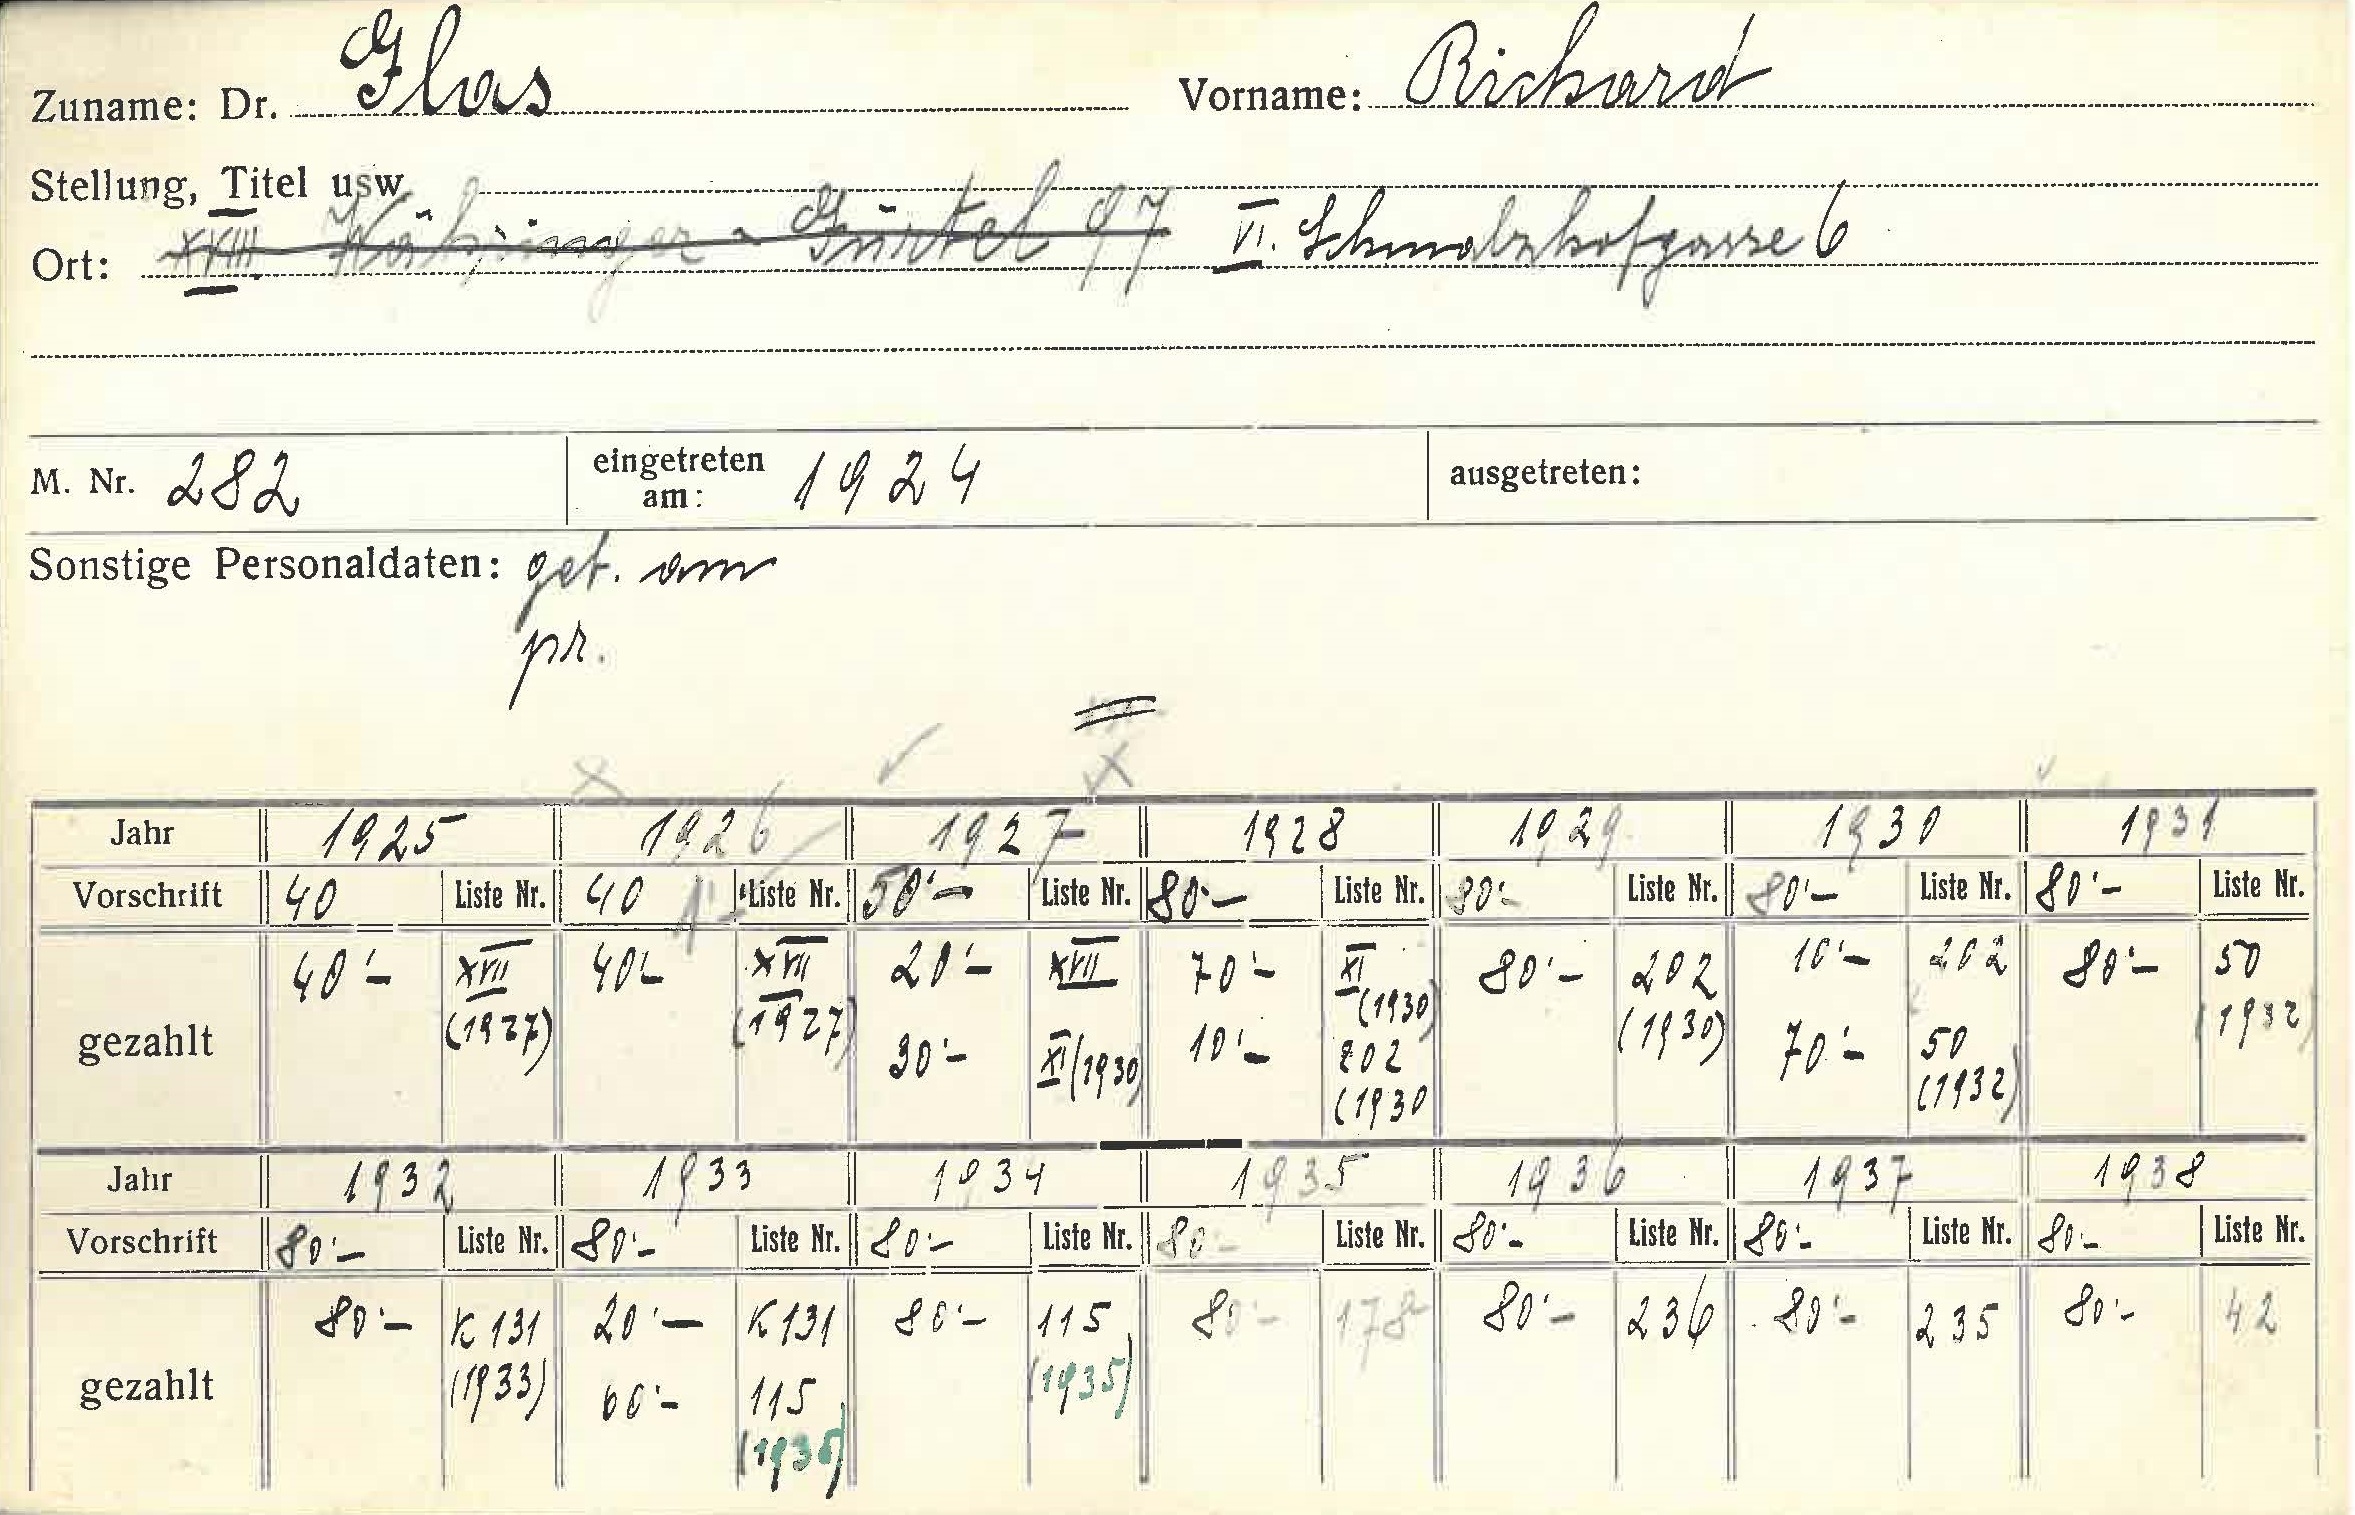 Zuname: Dr. Glas Vorname: Richard
Stellung, Titel usw
Ort: XVIII. Währinger-Gürtel 97 VI. Schmalzhofgasse 6
M. Nr. 282 eingetreten am: 1924 ausgetreten:
Sonstige Personaldaten: geb. am
pr.
Jahr 1925 1926 1927 1928 1929 1930 1931
Vorschrift 40 Liste Nr. 40 Liste Nr. 50'- Liste Nr. 80'- Liste Nr. 80'- Liste Nr. 80'- Liste Nr. 80'- Liste Nr.
40'- XVII 40'- XVII 20'- XVII 70'- XI 80'- 202 10'- 202 80'- 50
(1927) (1927) (1930) (1930) (1932)
gezahlt 30'- XI (1930) 10'- 202 70'- 50
(1930 (1932)
Jahr 1932 1933 1934 1935 1936 1937 1938
Vorschrift 80'- Liste Nr. 80'- Liste Nr. 80'- Liste Nr. 80'- Liste Nr. 80'- Liste Nr. 80'- Liste Nr. 80'- Liste Nr.
80'- K 131 20'- K 131 80'- 115 80'- 178 80'- 236 80'- 235 80'- 42
gezahlt (1933) 60'- 115 (1935)
(1935)